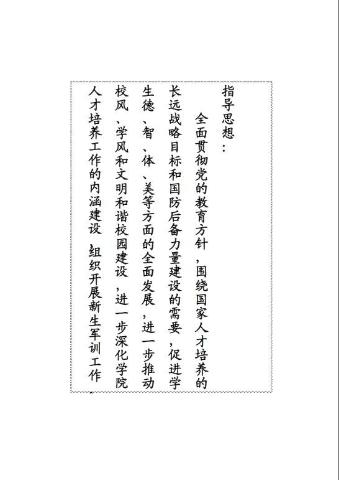 指导思想：
全面贯彻党的教育方针，围绕国家人才培养的
长远战略目标和国防后备力量建设的需要，促进学
生德、智、体、美等方面的全面发展，进一步推动
校风、学风和文明和谐校园建设，进一步深化学院
人才培养工作的内涵建设，组织开展新生军训工作。